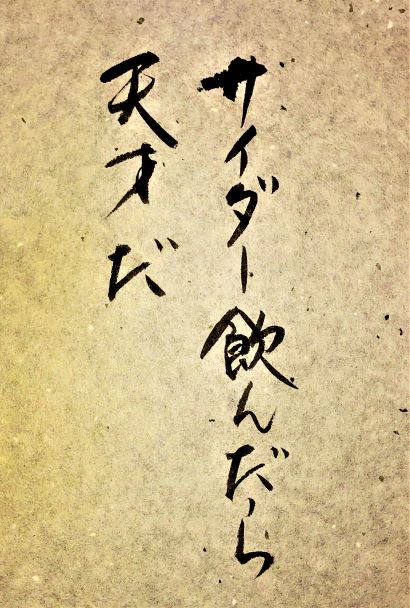 サイダー飲んだら
天才だ